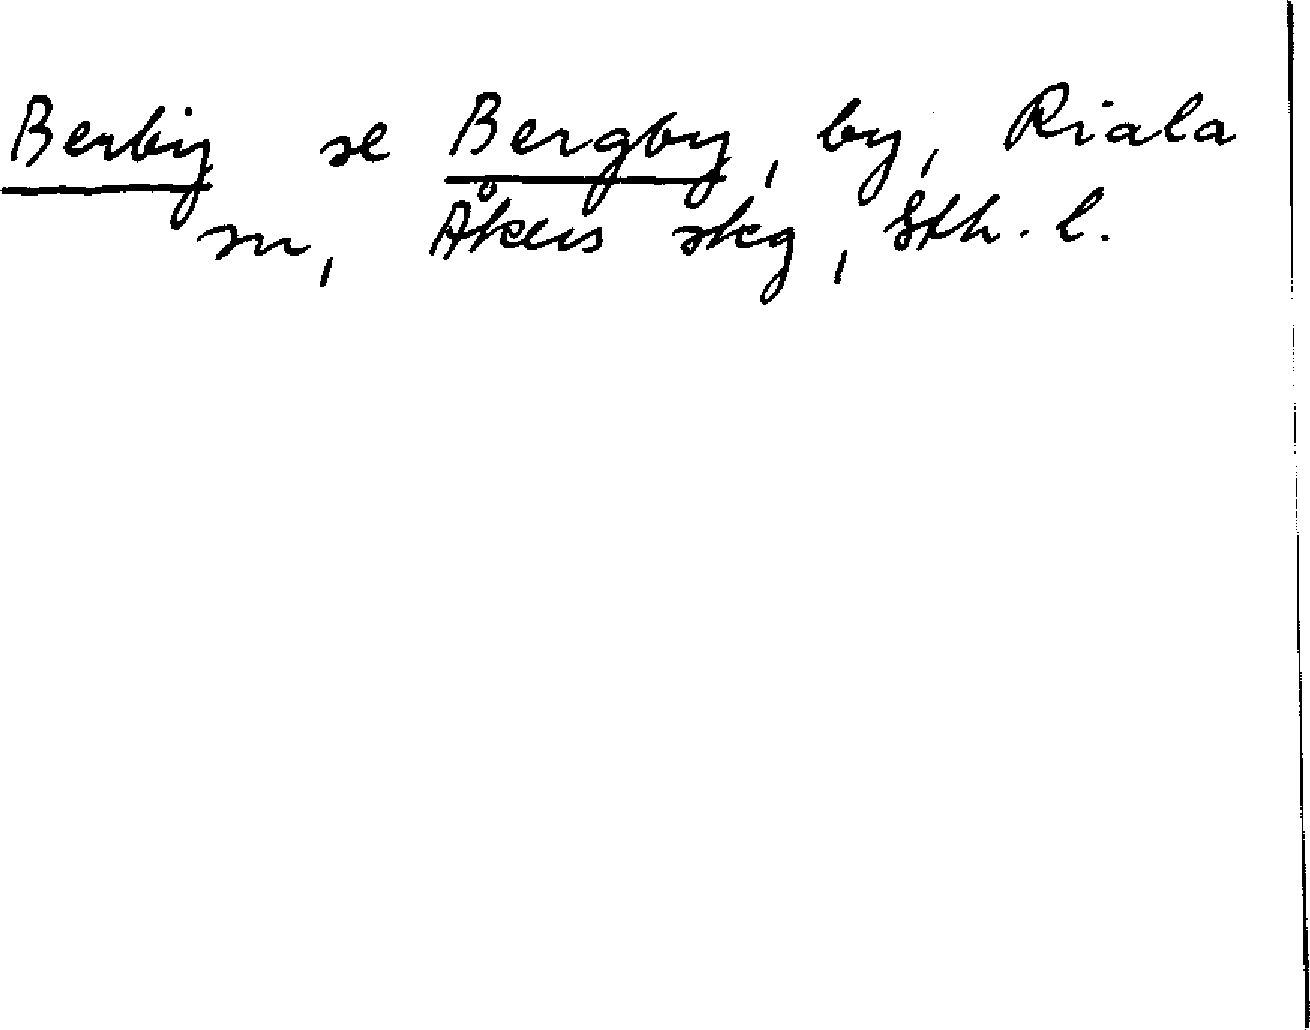 Berbij se Bergby, by, Riala
sn, Åkers skg, Sth. l.